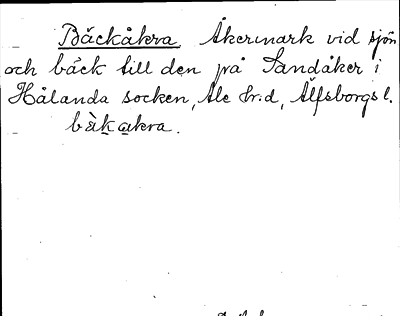 Bäckåkra Åkermark vid sjön
och bäck till den på Sandåker i
Hålanda socken, Ale hr:d, Älfsborgs l.
bàkakra.